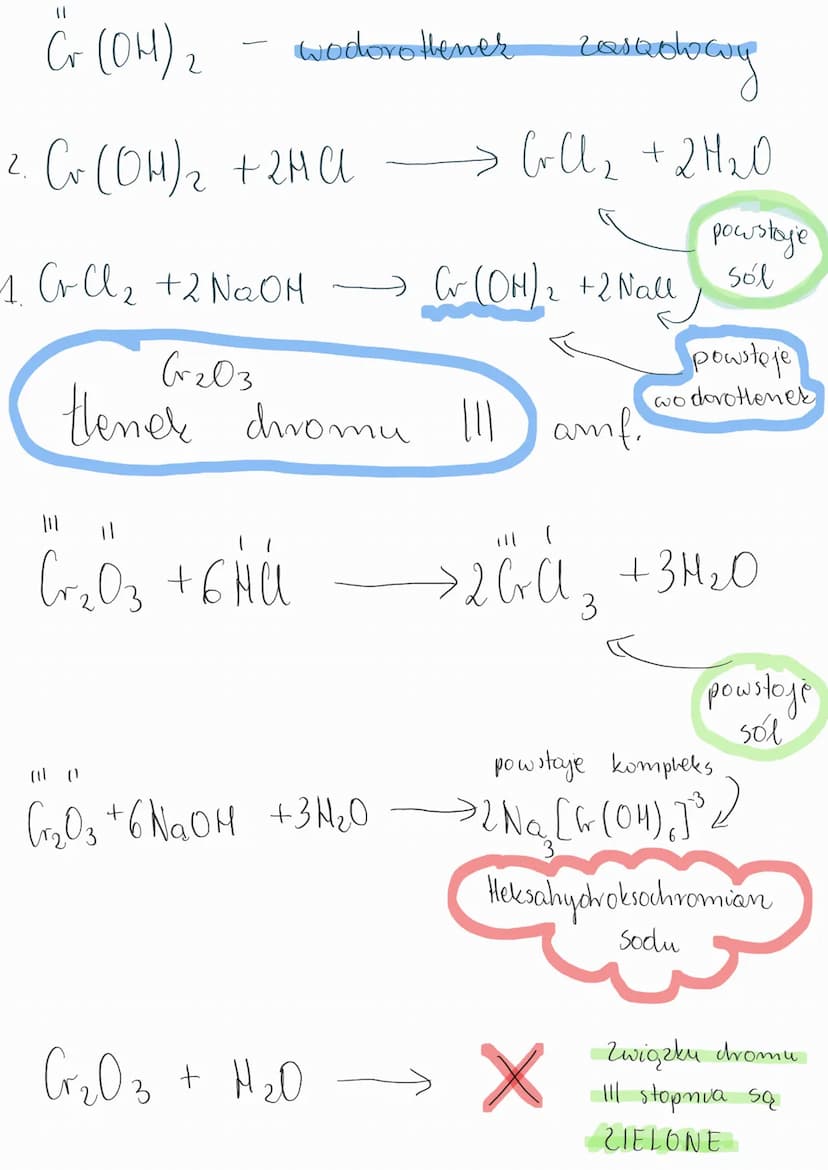 II
Cr(OH)₂ – wodorotlenek zasadowy
2. Cr(OH)₂ + 2HCl ⟶ CrCl₂ + 2H₂O
powstaje
sól
1. CrCl₂ + 2NaOH ⟶ Cr(OH)₂ + 2NaCl
powstaje
wodorotlenek
Cr₂O₃
tlenek chromu III amf.
III II I I III I
Cr₂O₃ + 6HCl ⟶ 2CrCl₃ + 3H₂O
powstaje
sól
powstaje kompleks
III II
Cr₂O₃ + 6NaOH + 3H₂O ⟶ 2Na₃[Cr(OH)₆]⁻³
Heksahydroksochromian
sodu
Cr₂O₃ + H₂O ⟶ X
Związku chromu
III stopnia są
ZIELONE